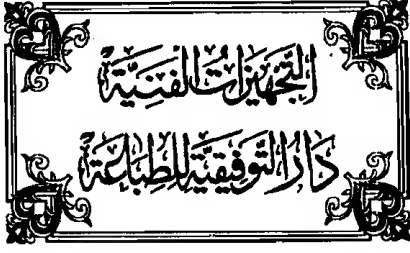 التَّجْهِيزَاتُ الفَنِّيَّة
دَارُ التَّوفِيقِيَّة لِلطِّبَاعَة